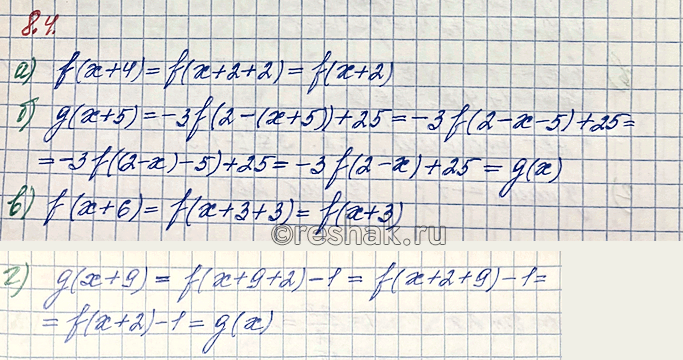 8.4.
а) f(x+4) = f(x+2+2) = f(x+2)
б) g(x+5) = -3f(2-(x+5))+25 = -3f(2-x-5)+25=
= -3f((2-x)-5)+25 = -3f(2-x)+25 = g(x)
в) f(x+6) = f(x+3+3) = f(x+3)
©reshak.ru
г) g(x+9) = f(x+9+2)-1 = f(x+2+9)-1=
= f(x+2)-1 = g(x)